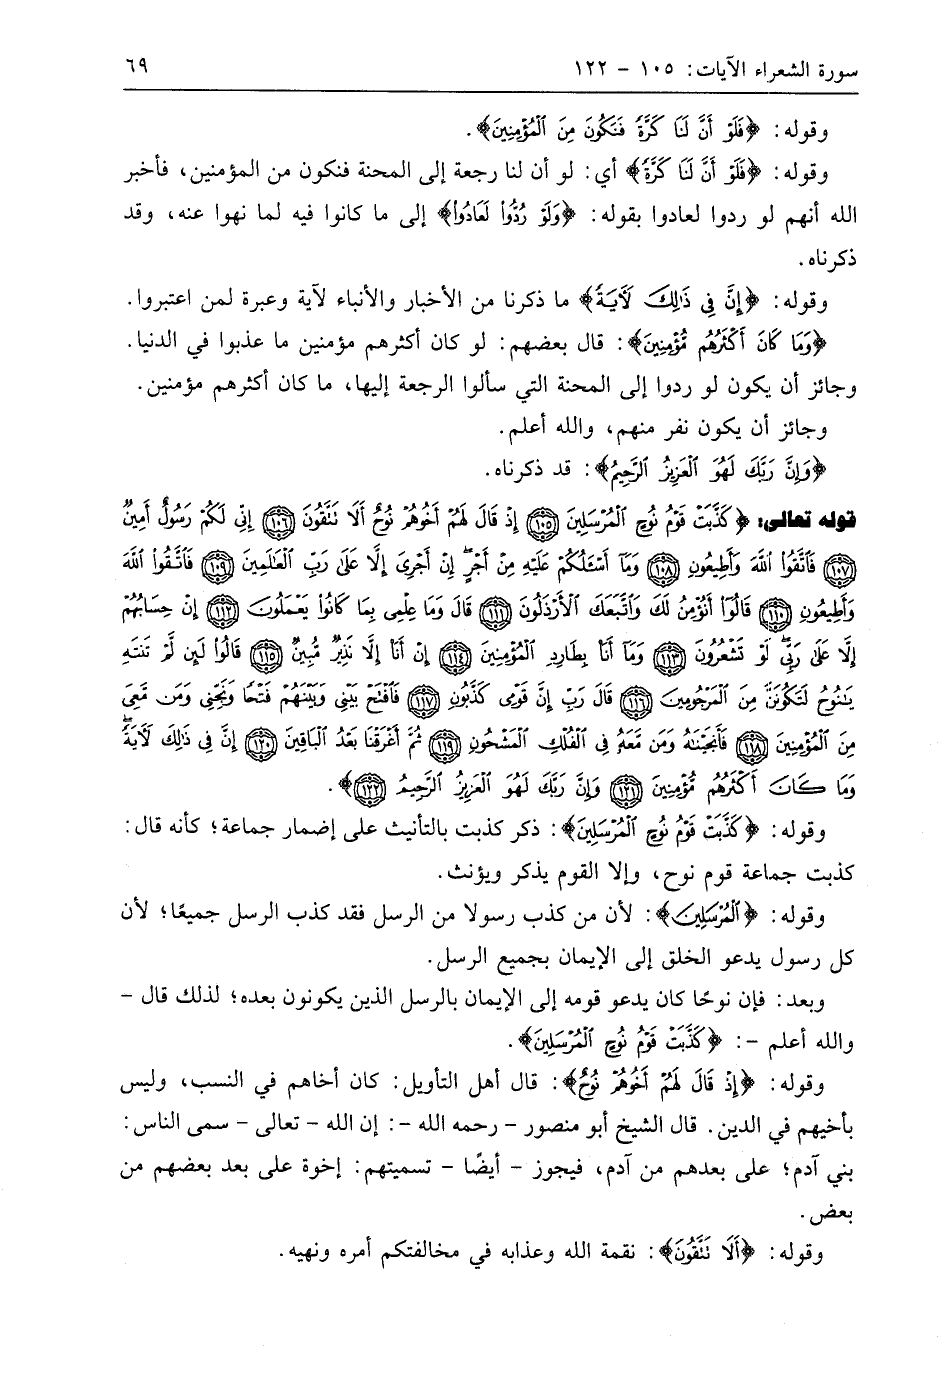 سورة الشعراء الآيات: ١٠٥ - ١٢٢ ٦٩
وقوله: ﴿فَلَوْ أَنَّ لَنَا كَرَّةً فَنَكُونَ مِنَ الْمُؤْمِنِينَ﴾.
وقوله: ﴿فَلَوْ أَنَّ لَنَا كَرَّةً﴾ أي: لو أن لنا رجعة إلى المحنة فنكون من المؤمنين، فأخبر
الله أنهم لو ردوا لعادوا بقوله: ﴿وَلَوْ رُدُّوا لَعَادُوا﴾ إلى ما كانوا فيه لما نهوا عنه، وقد
ذكرناه.
وقوله: ﴿إِنَّ فِي ذَٰلِكَ لَآيَةً﴾ ما ذكرنا من الأخبار والأنباء لآية وعبرة لمن اعتبروا.
﴿وَمَا كَانَ أَكْثَرُهُم مُّؤْمِنِينَ﴾: قال بعضهم: لو كان أكثرهم مؤمنين ما عذبوا في الدنيا.
وجائز أن يكون لو ردوا إلى المحنة التي سألوا الرجعة إليها، ما كان أكثرهم مؤمنين.
وجائز أن يكون نفر منهم، والله أعلم.
﴿وَإِنَّ رَبَّكَ لَهُوَ الْعَزِيزُ الرَّحِيمُ﴾: قد ذكرناه.
قوله تعالى: ﴿كَذَّبَتْ قَوْمُ نُوحٍ الْمُرْسَلِينَ ١٠٥ إِذْ قَالَ لَهُمْ أَخُوهُمْ نُوحٌ أَلَا تَتَّقُونَ ١٠٦ إِنِّي لَكُمْ رَسُولٌ أَمِينٌ
١٠٧ فَاتَّقُوا اللَّهَ وَأَطِيعُونِ ١٠٨ وَمَا أَسْئَلُكُمْ عَلَيْهِ مِنْ أَجْرٍ إِنْ أَجْرِيَ إِلَّا عَلَىٰ رَبِّ الْعَالَمِينَ ١٠٩ فَاتَّقُوا اللَّهَ
وَأَطِيعُونِ ١١٠ قَالُوا أَنُؤْمِنُ لَكَ وَاتَّبَعَكَ الْأَرْذَلُونَ ١١١ قَالَ وَمَا عِلْمِي بِمَا كَانُوا يَعْمَلُونَ ١١٢ إِنْ حِسَابُهُمْ
إِلَّا عَلَىٰ رَبِّي لَوْ تَشْعُرُونَ ١١٣ وَمَا أَنَا بِطَارِدِ الْمُؤْمِنِينَ ١١٤ إِنْ أَنَا إِلَّا نَذِيرٌ مُّبِينٌ ١١٥ قَالُوا لَئِن لَّمْ تَنتَهِ
يَا نُوحُ لَتَكُونَنَّ مِنَ الْمَرْجُومِينَ ١١٦ قَالَ رَبِّ إِنَّ قَوْمِي كَذَّبُونِ ١١٧ فَافْتَحْ بَيْنِي وَبَيْنَهُمْ فَتْحًا وَنَجِّنِي وَمَن مَّعِيَ
مِنَ الْمُؤْمِنِينَ ١١٨ فَأَنجَيْنَاهُ وَمَن مَّعَهُ فِي الْفُلْكِ الْمَشْحُونِ ١١٩ ثُمَّ أَغْرَقْنَا بَعْدُ الْبَاقِينَ ١٢٠ إِنَّ فِي ذَٰلِكَ لَآيَةً
وَمَا كَانَ أَكْثَرُهُم مُّؤْمِنِينَ ١٢١ وَإِنَّ رَبَّكَ لَهُوَ الْعَزِيزُ الرَّحِيمُ ١٢٢﴾.
وقوله: ﴿كَذَّبَتْ قَوْمُ نُوحٍ الْمُرْسَلِينَ﴾: ذكر كذبت بالتأنيث على إضمار جماعة؛ كأنه قال:
كذبت جماعة قوم نوح، وإلا القوم يذكر ويؤنث.
وقوله: ﴿الْمُرْسَلِينَ﴾: لأن من كذب رسولا من الرسل فقد كذب الرسل جميعًا؛ لأن
كل رسول يدعو الخلق إلى الإيمان بجميع الرسل.
وبعد: فإن نوحًا كان يدعو قومه إلى الإيمان بالرسل الذين يكونون بعده؛ لذلك قال -
والله أعلم -: ﴿كَذَّبَتْ قَوْمُ نُوحٍ الْمُرْسَلِينَ﴾.
وقوله: ﴿إِذْ قَالَ لَهُمْ أَخُوهُمْ نُوحٌ﴾: قال أهل التأويل: كان أخاهم في النسب، وليس
بأخيهم في الدين. قال الشيخ أبو منصور - رحمه الله -: إن الله - تعالى - سمى الناس:
بني آدم؛ على بعدهم من آدم، فيجوز - أيضًا - تسميتهم: إخوة على بعد بعضهم من
بعض.
وقوله: ﴿أَلَا تَتَّقُونَ﴾: نقمة الله وعذابه في مخالفتكم أمره ونهيه.